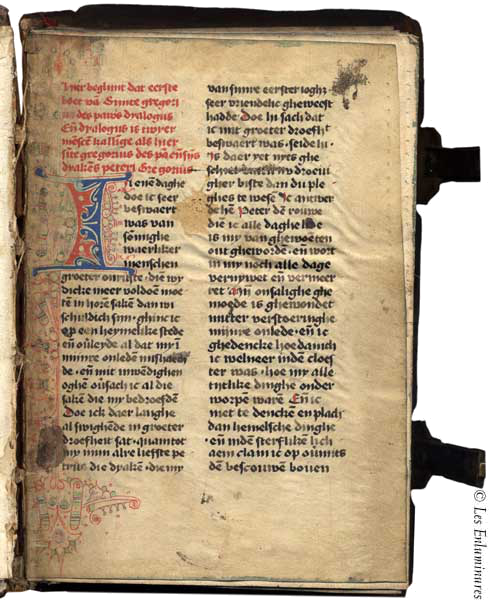 Hier beghint dat eerste
boec vā Sinte gregori
us des paws dyalogus
Eñ dyalogus is twyer
mēscē kallige als hier
sīte gregorius des paeusys
dyakēs peters Gregorius
I enē daghe
doe ic seer
beswaert
was van
sōmighe
waerliker
menschen
groeter onruste . diē wy
dicke meer voldoē moe
tē in horē sakē dan wi
schuldich sijn . ghinc ic
op een heymelike stede
eñ ouleyde al dat my ī
mijnre onledē mishaech
de . eñ mit inwēdighen
oghē ouersach ic al die
sakē die my bedroefdē
Doe ick daer langhe
al swighēde in groeter
droefheit sat . quam tot
my mijn alre liefste pe
trus die dyakē . die my
van sijnre eerster ioghet
seer vriendelic gheweest
hadde Doe hi sach dat
ic mit groeter droefh̄t
beswaert was . seide hi .
Is daer yet nyes ghe
schiet droeui
gher biste dan du ple
ghes te wesē Ic antwer
de hē Peter dē rouwe
diē ic alle daghe
is my van ghewoēten
out ghewordē . eñ wort
in my noch alle dage
vernywet eñ vermeer
ret Mijn onsalighe ghe
moede is ghewondet
mitter verstoeringhe
mijnre onlede . eñ ic
ghedencke hoedanich
ic welneer indē cloes
ter was . hoe my alle
tijtlike dinghe onder
worpē warē Eñ ic
niet te denckē en plach
dan hemelsche dinghe
eñ indē sterflikē lich
aem clam ic op ouermits
dē bescouwen bouen
© Les Enluminures